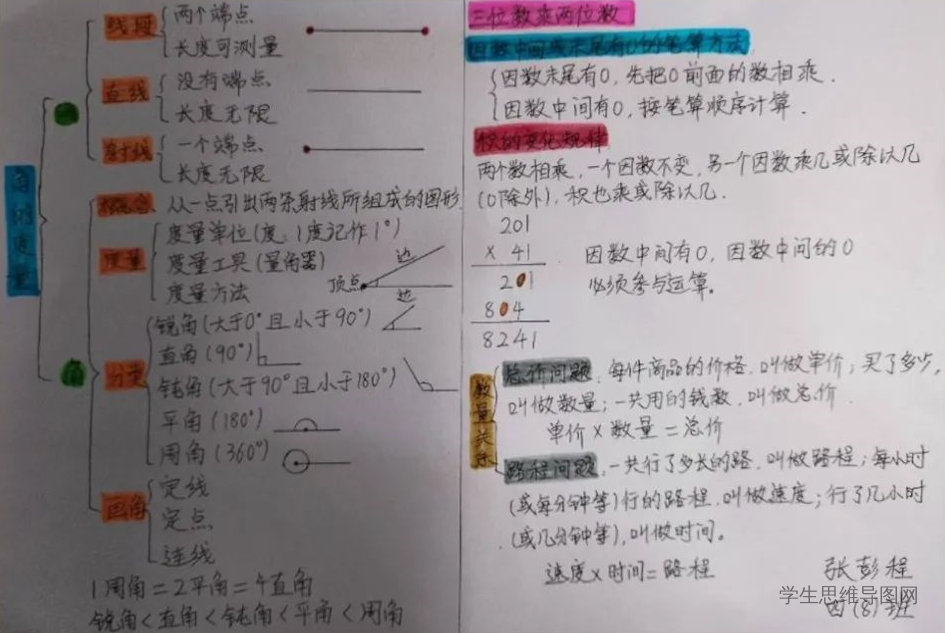 角的度量
线
线段
两个端点
长度可测量
直线
没有端点
长度无限
射线
一个端点
长度无限
角
概念 从一点引出两条射线所组成的图形
度量
度量单位(度、1度记作1°)
度量工具(量角器)
度量方法
顶点
边
边
分类
锐角(大于0°且小于90°)
直角(90°)
钝角(大于90°且小于180°)
平角(180°)
周角(360°)
画角
定线
定点
连线
1周角=2平角=4直角
锐角<直角<钝角<平角<周角
三位数乘两位数
因数中间或末尾有0的笔算方法
因数末尾有0,先把0前面的数相乘.
因数中间有0,按笔算顺序计算.
积的变化规律
两个数相乘,一个因数不变,另一个因数乘几或除以几
(0除外),积也乘或除以几.
201
× 41
201
804
8241
因数中间有0,因数中间的0
必须参与运算。
数量关系
总价问题,每件商品的价格,叫做单价;买了多少,
叫做数量;一共用的钱数,叫做总价.
单价×数量=总价
路程问题,一共行了多长的路,叫做路程;每小时
(或每分钟等)行的路程,叫做速度;行了几小时
(或几分钟等),叫做时间。
速度×时间=路程
张彭程
四(8)班
学生思维导图网